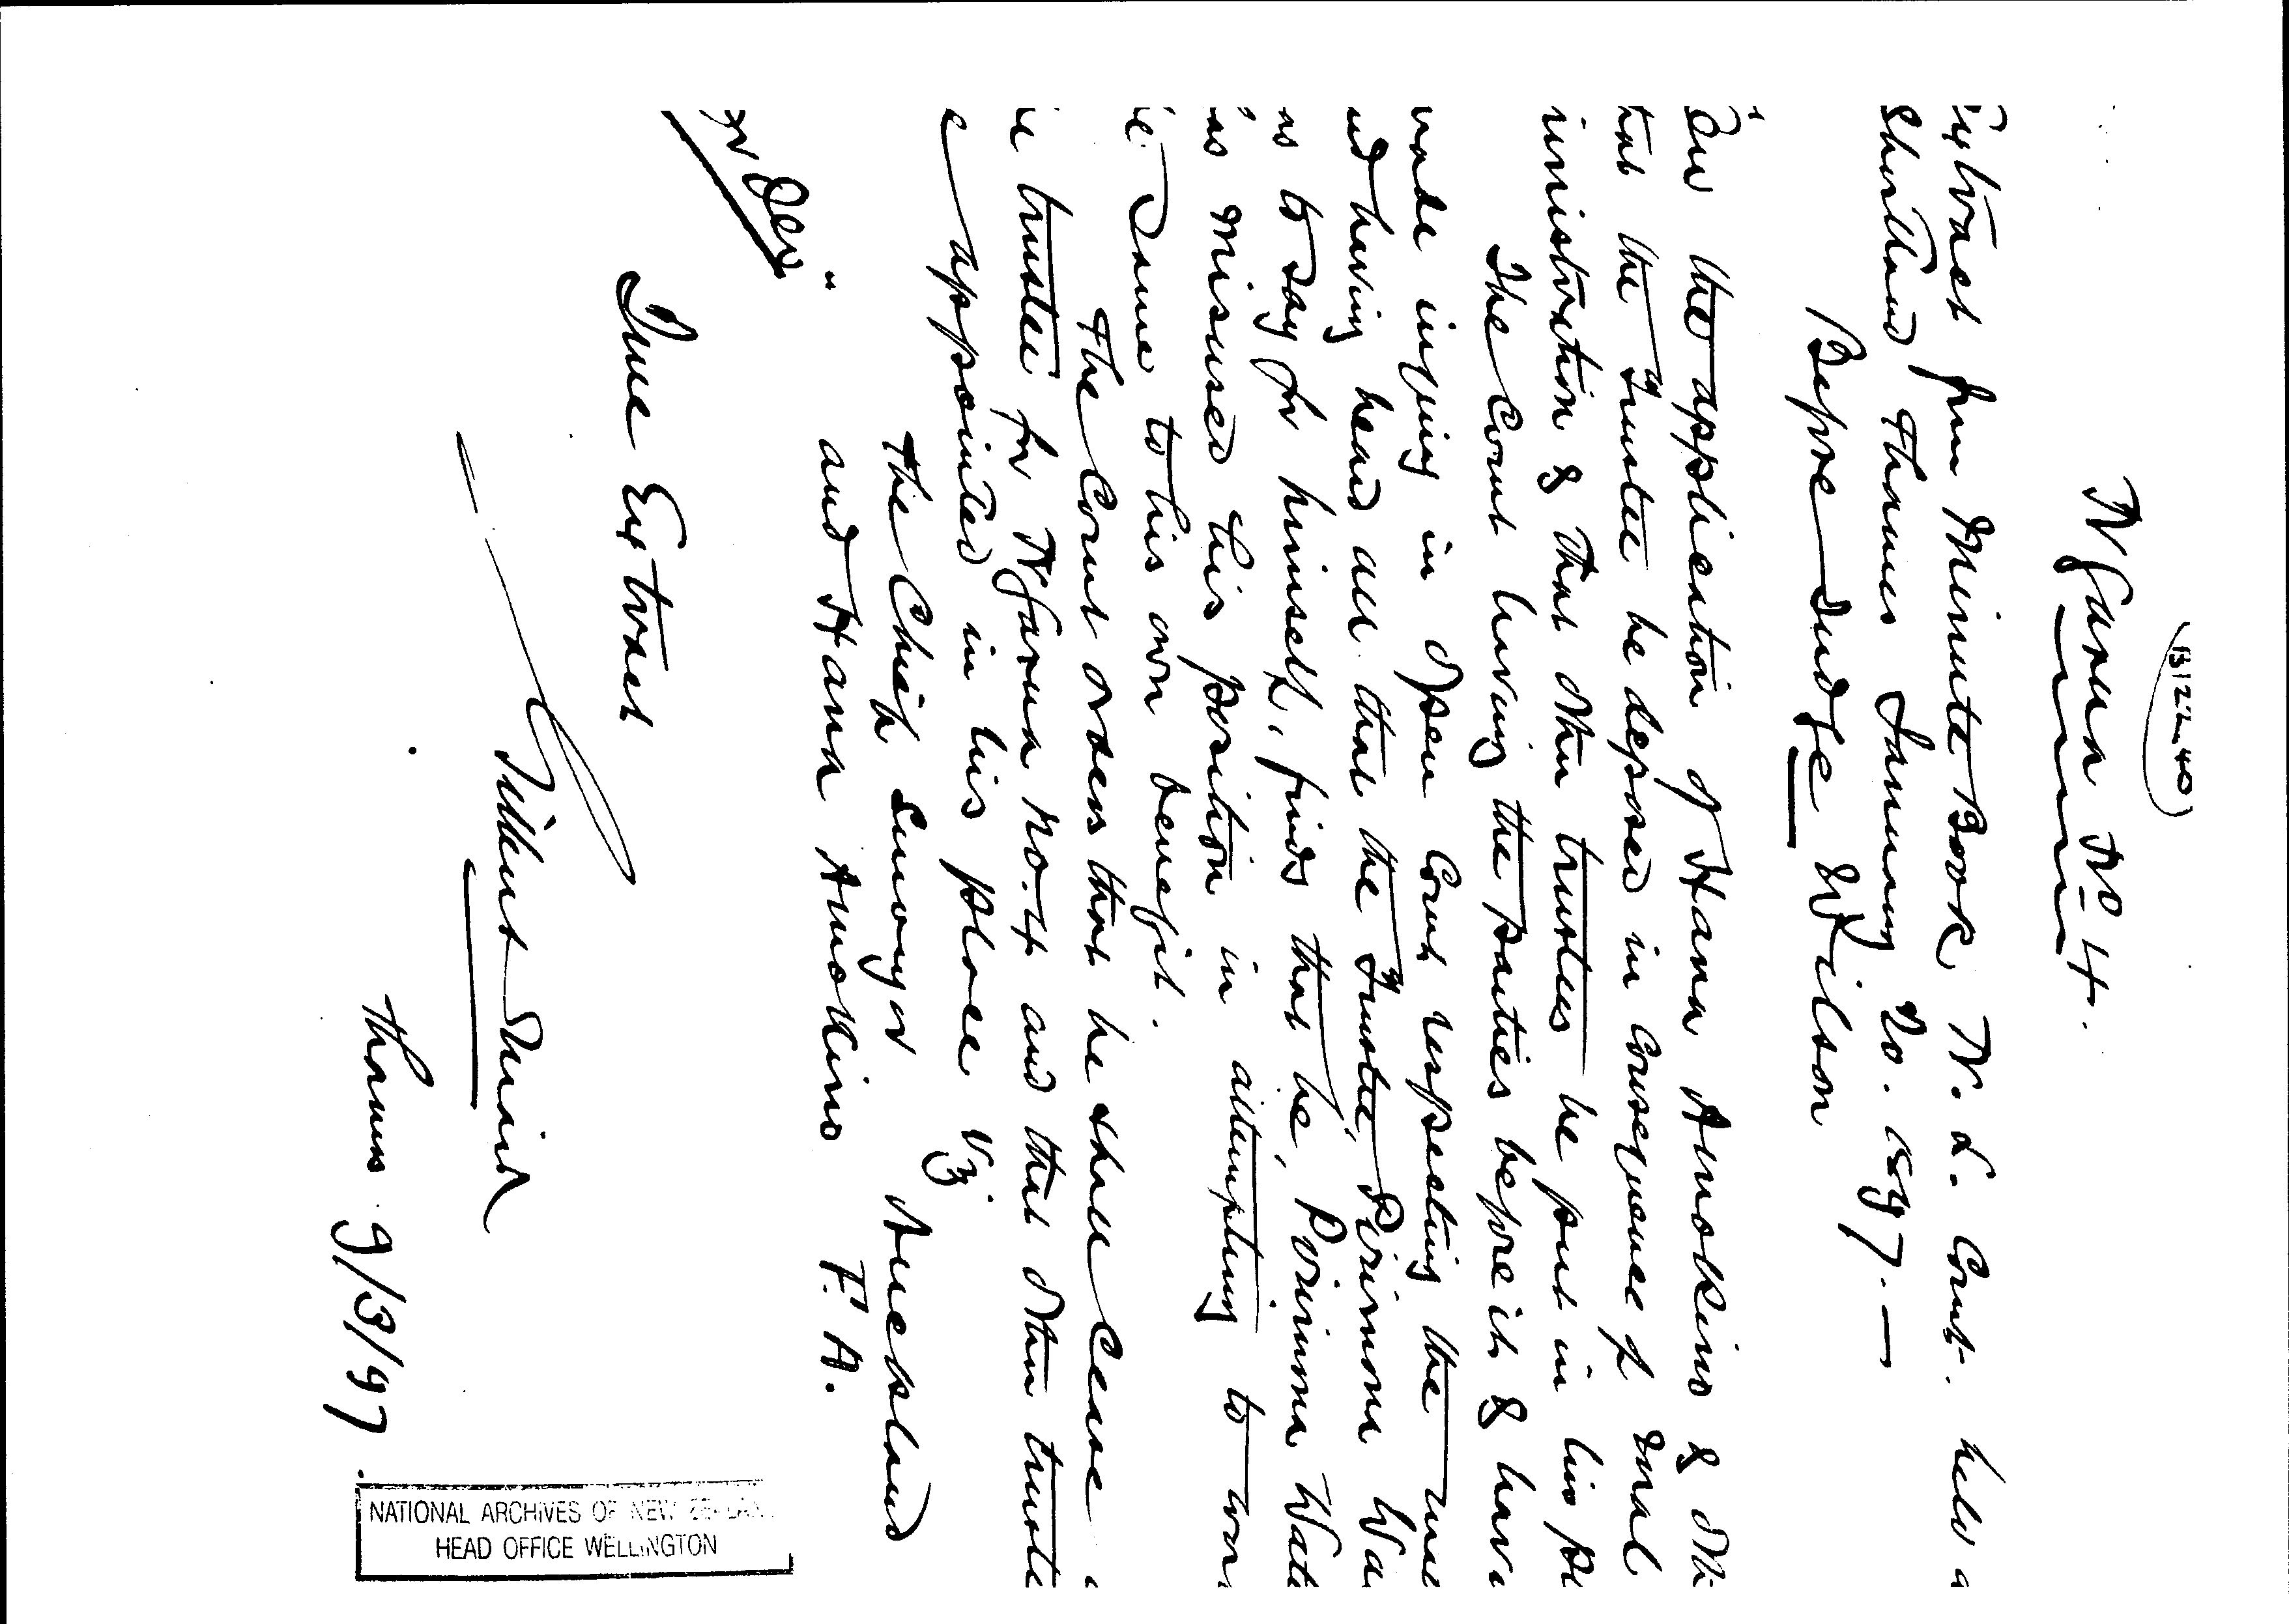 B122-40
Ngarua No 4.
Extract from Minute Book, N. L. Court. held a
Shortland Thames January 20. 1897.—
Before Judge Wilson
"On the application of Hana & othe
that the Trustee be deposed in consequence of mal
ministration & that other trustees be put in his pl
The Court having the parties before it & hav
made inquiry in open Court respecting the
nd having heard all that the Trustee, Pirimona Wa
as to say for himself, finds that he, Pirimona Wate
as misused his position in attempting to
e same to his own benefit.
The Court orders that he shall cease
e trustee for Ngarua No. 4 and that other truste
e appointed in his place viz
The Chief Surveyor Auckland
and Hana F. A.
"
True Extract
Gilbert Mair
Thames 9/3/97
NATIONAL ARCHIVES OF NEW ZEALAND
HEAD OFFICE WELLINGTON